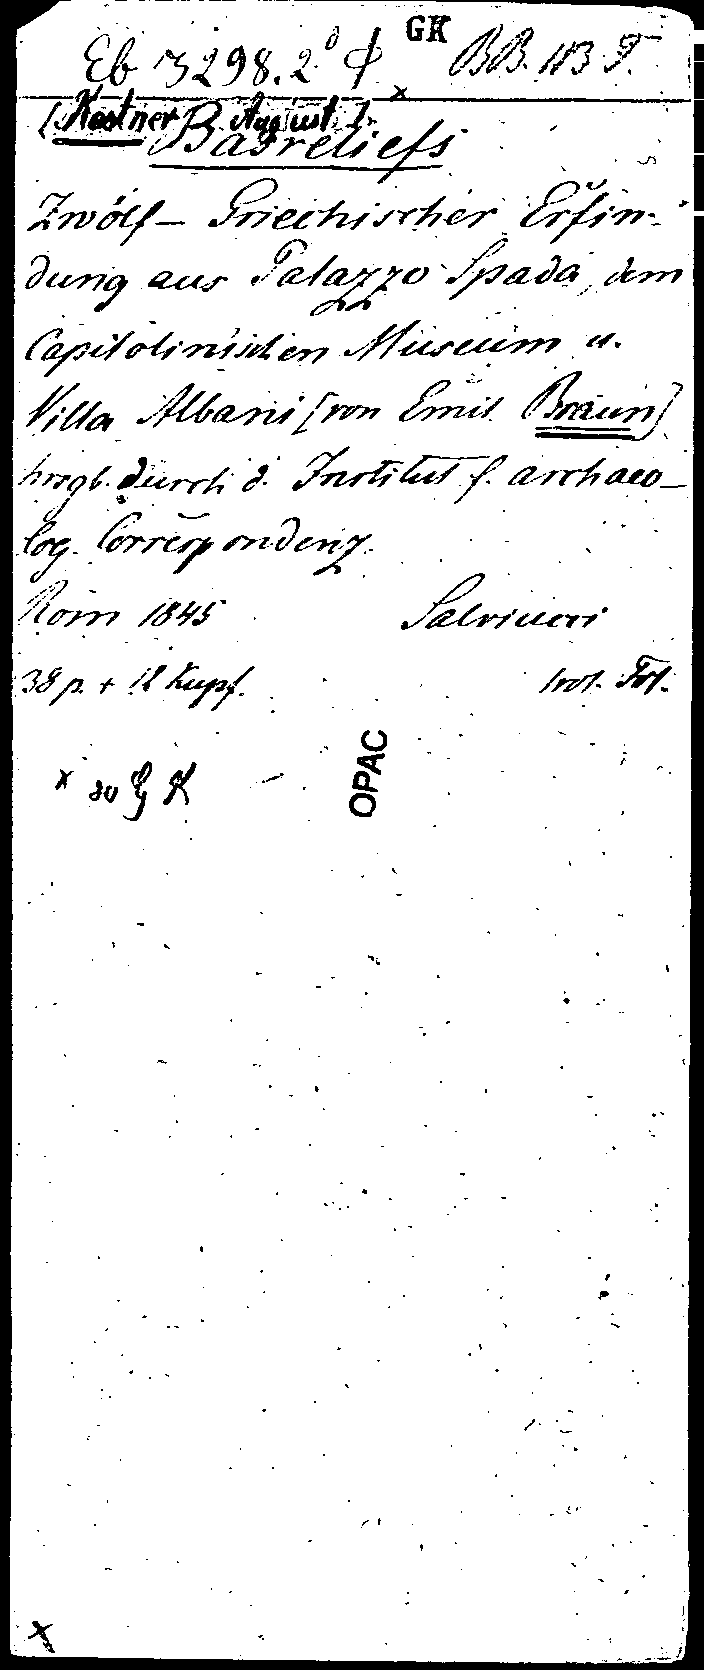 Eb 3298.2° ф GK BB. 113 F.
[Kestner, August]. x
Basreliefs
Zwölf – Griechischer Erfin-
dung aus Palazzo Spada, dem
Capitolinischen Museum u.
Villa Albani [von Emil Braun]
hrsgb. durch d. Institut f. archaeo-
log. Correspondenz.
Rom 1845 Salviucci
38 p. + 12 Kupf. Fol.
x
OPAC
x